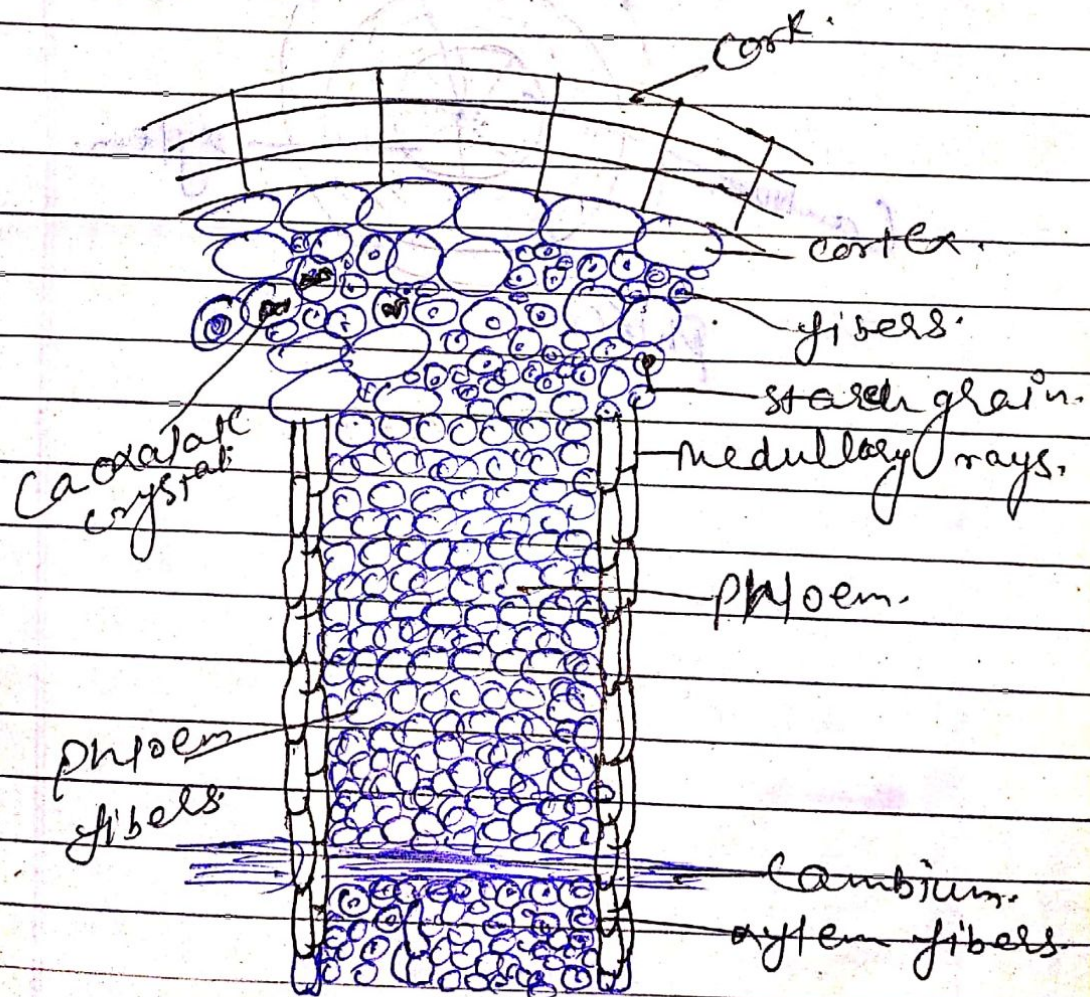 cork.
cortex.
fibers.
starch grain.
medullary rays.
Ca oxalate
crystal.
phloem.
phloem
fibers.
Cambium.
xylem fibers.